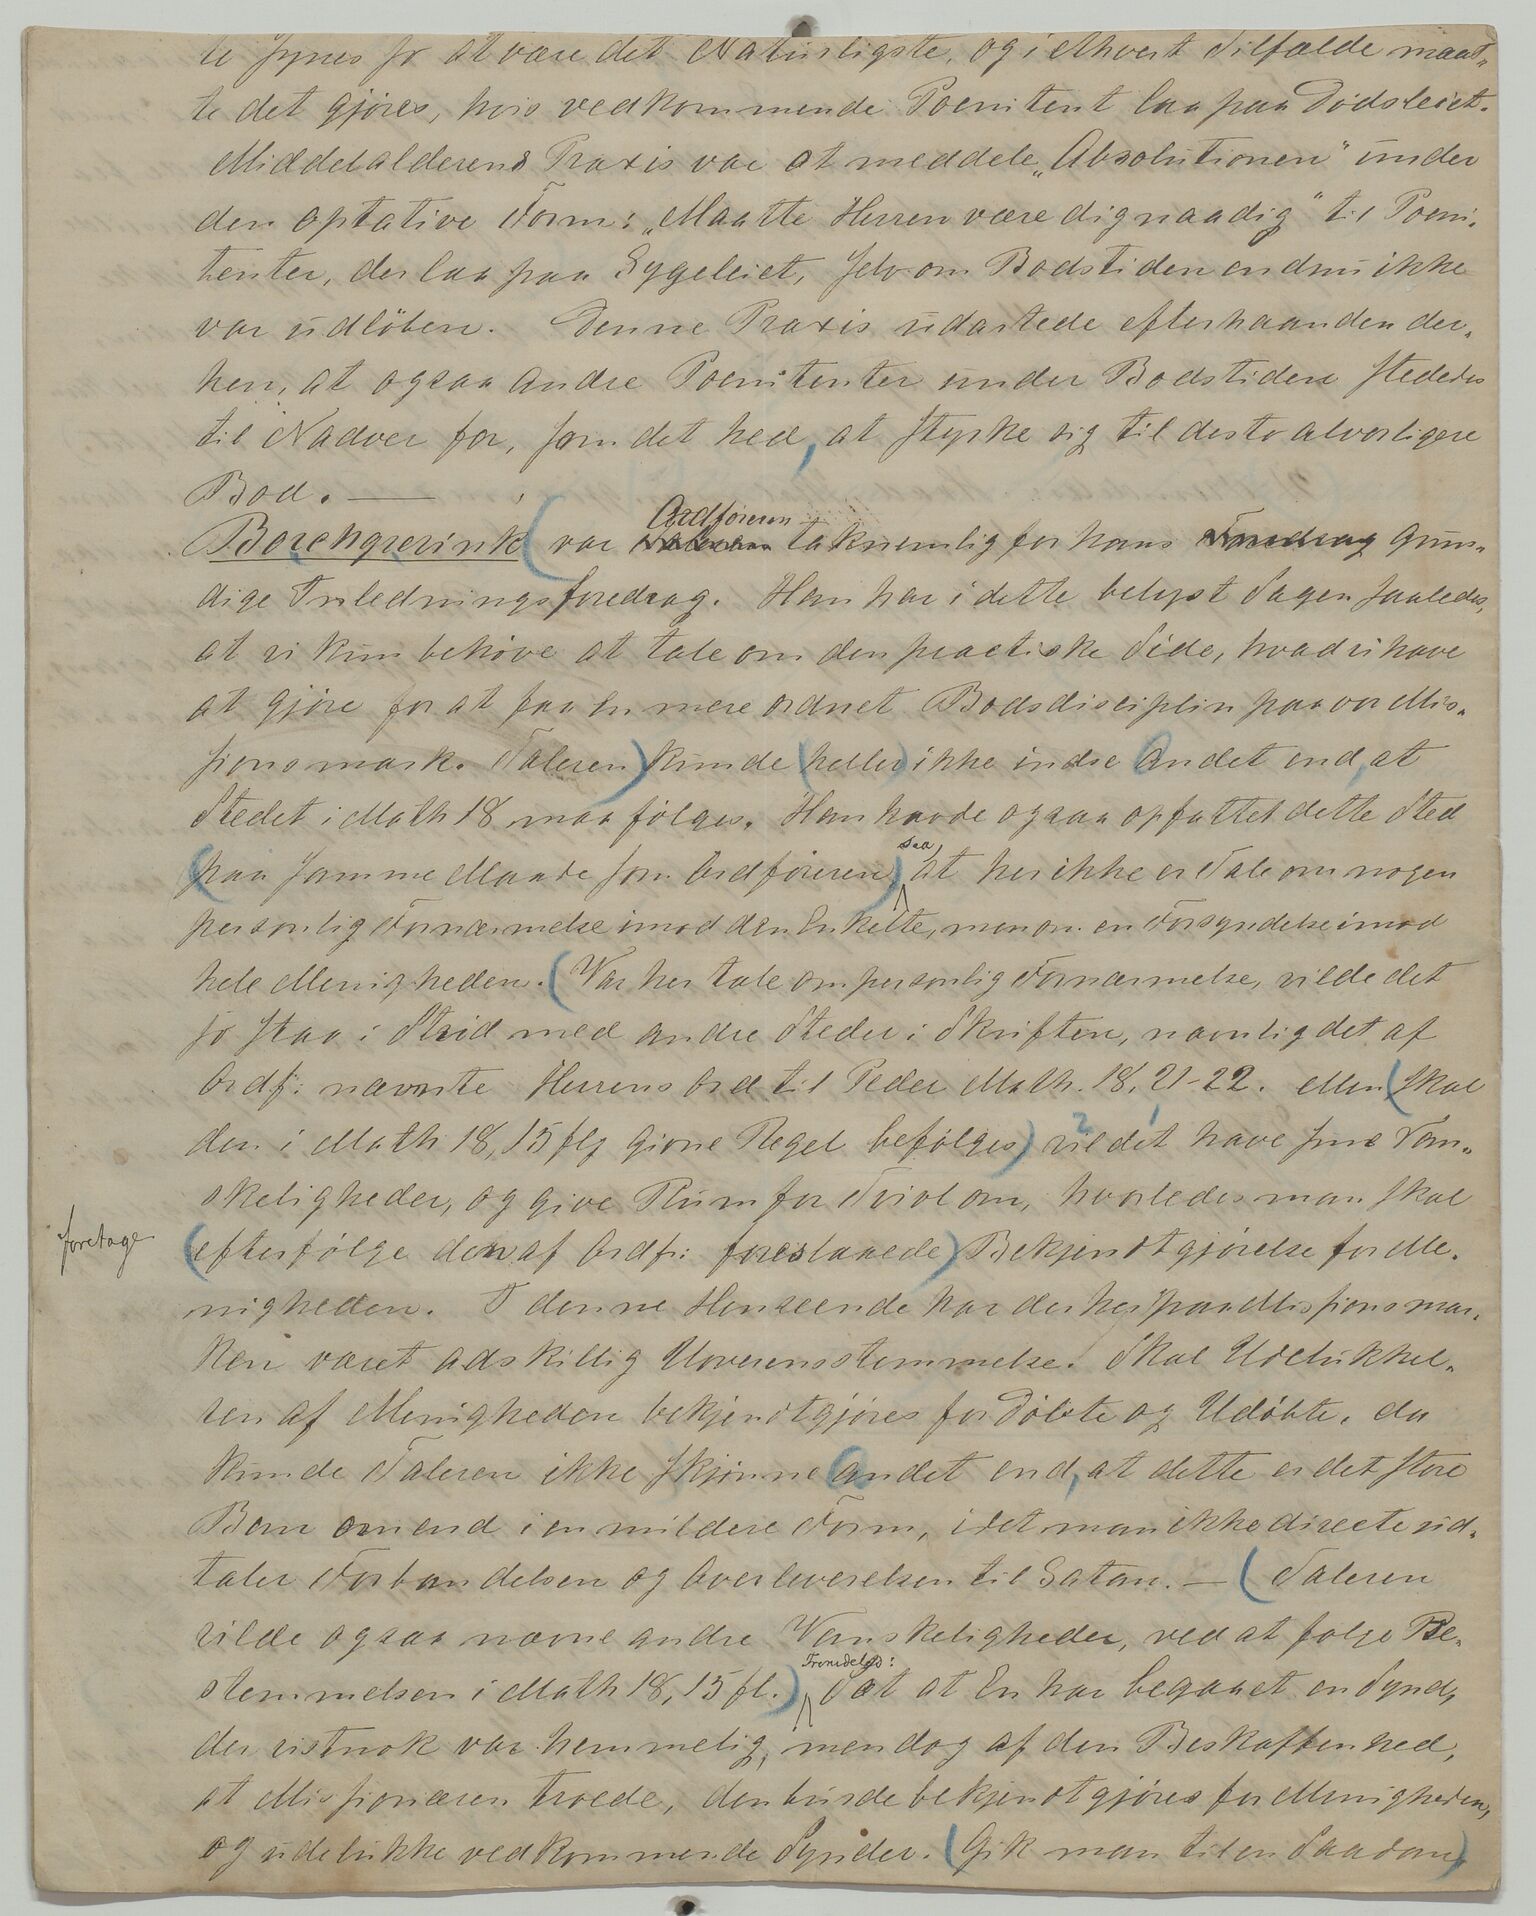 te synes jo at være det Naturligste, og i ethvert Tilfælde maat-
te det gjöres, hvis vedkommende Poenitent laa paa Dödsleiet.
Middelalderens Praxis var at meddele „Absolutionen" under
den optative Form: „Maatte Herren være dig naadig" til Poeni-
tenter, der laa paa Sygeleiet, selv om Bodstiden endnu ikke
var udlöben. Denne Praxis udartede efterhaanden der-
hen, at ogsaa andre Poenitenter under Bodstiden stededes
til Nadver for, som det hed, at styrke sig til desto alvorligere
Bod. —
Ordföreren
Borchgrevink (var Taleren taknemlig for hans Foredrag grun-
dige Indledningsforedrag. Han har i dette belyst Sagen saaledes,
at vi kun behöve at tale om den practiske Side, hvad vi have
at gjöre for at faa en mere ordnet Bodsdisciplin paa vor Mis-
sionsmark. Taleren) kunde (heller) ikke indse Andet end, at
Stedet i Math 18 maa fölges. Han havde ogsaa opfattet dette Sted
saa,
(paa samme Maade som Ordföreren) at her ikke er Tale om nogen
personlig Fornærmelse imod den Enkelte, men om en Forsyndelse imod
hele Menigheden. (Var her tale om personlig Fornærmelse, vilde det
jo staa i Strid med andre Steder i Skriften, navnlig det af
Ordf: nævnte Herrens Ord til Peder Math. 18, 21-22. Men (skal
den i Math 18, 15 flg givne Regel befölges) vil det have sine Van-
2 1
skeligheder, og give Rum for Tvivl om, hvorledes man skal
foretage
(efterfölge den af Ordf: foreslaaede) Bekjendtgjörelse for Me-
nigheden. I denne Henseende har der her paa Missionsmar-
ken været adskillig Uoverensstemmelse. Skal Udelukkel-
sen af Menigheden bekjendtgjöres for Döbte og Udöbte, da
kunde Taleren ikke skjönne andet end, at dette er det store
Ban om end i en mildere Form, idet man ikke directe ud-
taler Forbandelsen og Overleverelsen til Satan. — (Taleren
vilde ogsaa nævne andre Vanskeligheder, ved at fölge Be-
Fremdeles:
stemmelsen i Math 18, 15 fl.) Sæt at En har begaaet en Synd,
der vistnok var hemmelig, men dog af den Beskaffenhed,
at Missionæren troede, den burde bekjendtgjöres for Menigheden,
og udelukke vedkommende Synder. (Gik man til en Saadan)